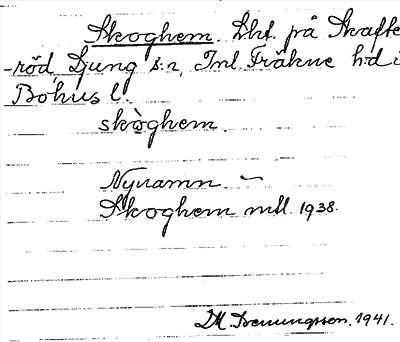 Skoghem. Lht. på Skafte
-röd, Ljung s:n, Inl. Fräkne h:d i
Bohus l.
skòghem
Nynamn –
Skoghem mtl. 1938.
1941.